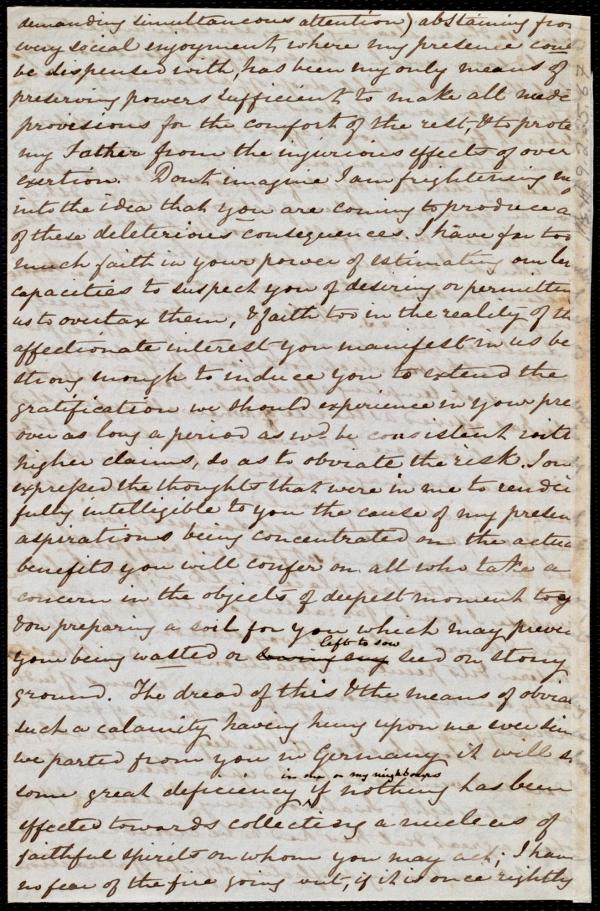 demanding simultaneous attention) abstaining from
every social enjoyment, where my presence could
be dispensed with, has been my only means of
preserving powers sufficient to make all need
provisions for the comfort of the rest, & to prote
my Father from the injurious effects of over
exertion. Dont imagine I am frightening my
into the idea that you are coming to produce a
of these deleterious consequences. I have far too
much faith in your power of estimating our
capacities to suspect you of desiring or permitting
us to overtax them, & faith too in the reality of th
affectionate interest you manifest in us be
strong enough to induce you to extend the
gratification we should experience in your pre
over as long a period as wd be consistent with
higher claims, so as to obviate the risk. I on
expressed the thoughts that were in me to render
fully intelligible to you the cause of my present
aspirations being concentrated on the actua
benefits you will confer on all who take a
concern in the objects of deepest moment to y
& on preparing a soil for you which may preve
left to sow
your being wasted or sowing any seed on stony
ground. The dread of this & the means of obvia
such a calamity having hung upon me ever sin
we parted from you in Germany it will
in me or my neighbours
some great deficiency if nothing has been
effected towards collecting a nucleus of
faithful spirits on whom you may act; I have
no fear of the fire going out, if it is once rightly